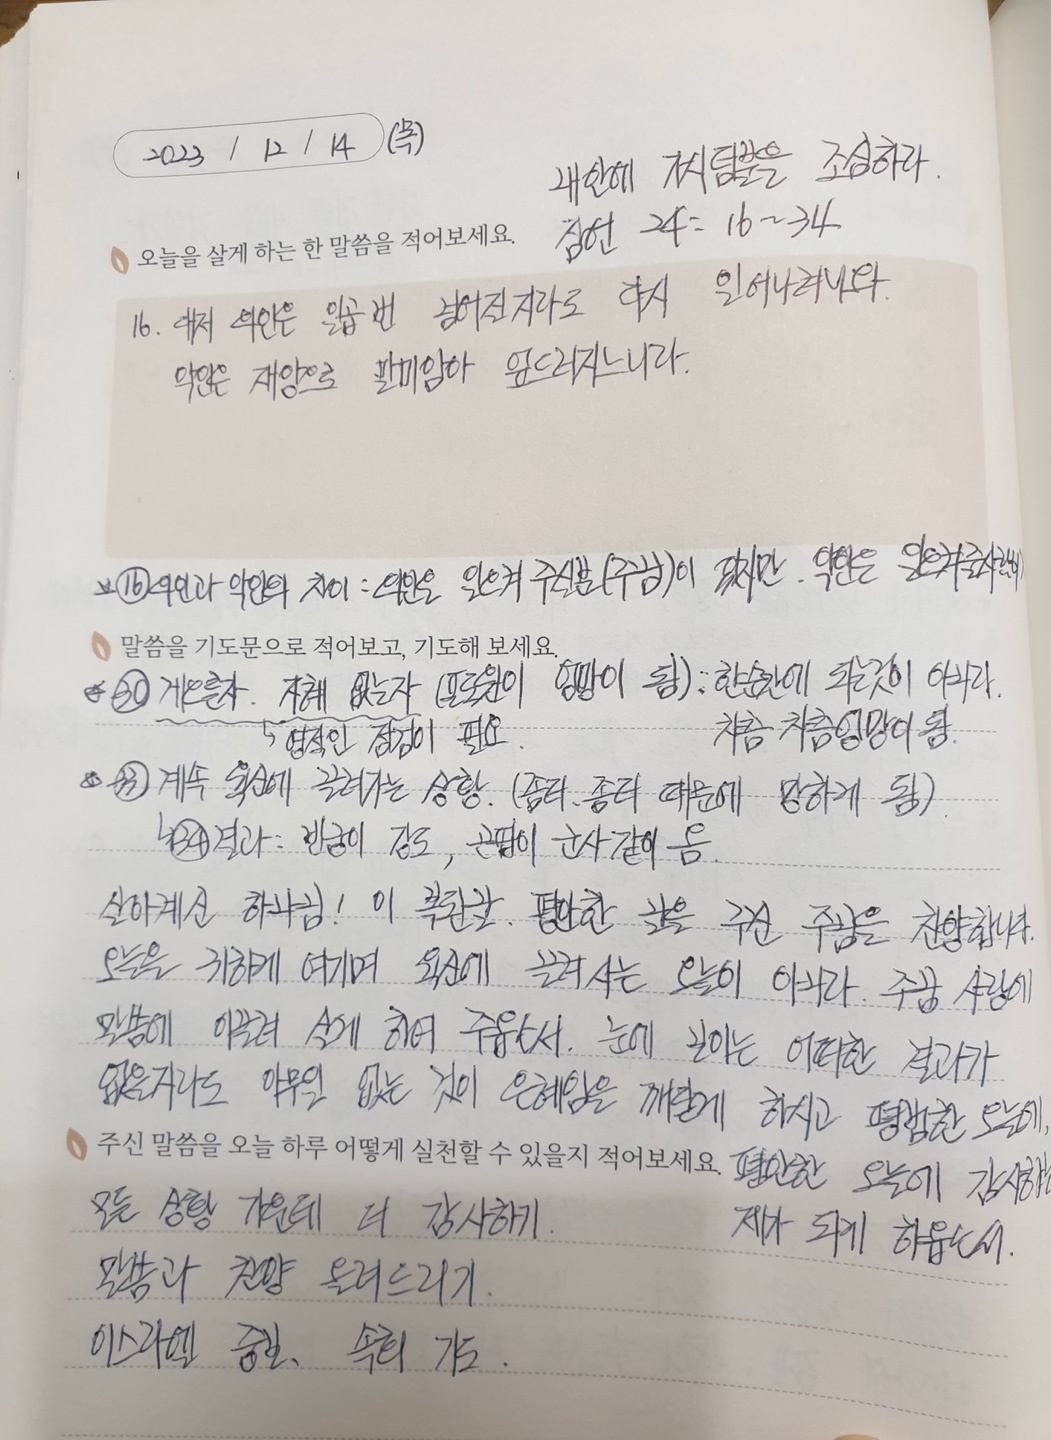 2023 / 12 / 14 (목)
내안에 가시덤불을 조심하라.
잠언 24: 16~34
오늘을 살게 하는 한 말씀을 적어보세요.
16. 대저 의인은 일곱번 넘어질지라도 다시 일어나려니와.
악인은 재앙으로 말미암아 엎드러지느니라.
⑯ 의인과 악인의 차이 : 의인은 일으켜 주실분(주님)이 있지만. 악인은 일으켜줄자
말씀을 기도문으로 적어보고, 기도해 보세요.
㉚ 게으른자. 지혜 없는자 (포도원이 엉망이 됨): 한순간에 되는것이 아니라.
↳ 영적인 점검이 필요. 차츰 차츰 엉망이 됨.
㉝ 계속 육신에 끌려가는 상황. (좀더. 좀더 때문에 망하게 됨)
↳ ㉞ 결과 : 빈궁이 강도, 곤핍이 군사같이 옴.
살아계신 하나님! 이 복된날. 평안한 날을 주신 주님을 찬양합니다.
오늘을 귀하게 여기며 육신에 끌려 사는 오늘이 아니라. 주님 사랑에
말씀에 이끌려 살게 하여 주옵소서. 눈에 보이는 어떠한 결과가
없을지라도 아무일 없는 것이 은혜임을 깨닫게 하시고 평범한 오늘에,
주신 말씀을 오늘 하루 어떻게 실천할 수 있을지 적어보세요. 평안한 오늘에 감사하는
모든 상황 가운데 더 감사하기. 제가 되게 하옵소서.
말씀과 찬양 올려드리기.
이스라엘 중보. 속회 기도.